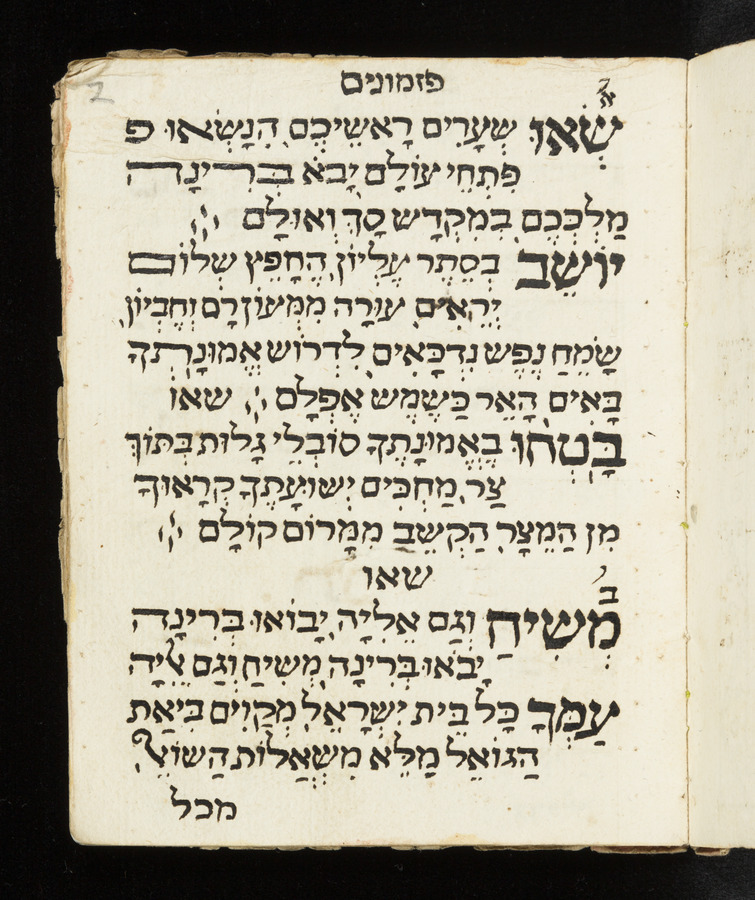 פזמונים
2
א
שְׂאוּ שְׁעָרִים רָאשֵׁיכֶם הִנָּשְׂאוּ פ
פִּתְחֵי עוֹלָם יָבֹא בְּרִינָה
מַלְכְּכֶם בְּמִקְדָּשׁ סָךְ וְאוּלָם
יוֹשֵׁב בְּסֵתֶר עֶלְיוֹן הֶחָפֵץ שְׁלוֹם
יְרֵאִים עוּרָה מִמְּעוֹן רָם וְחֶבְיוֹן
שָׂמֵחַ נֶפֶשׁ נִדְכָּאִים לִדְרוֹשׁ אֱמוּנָתְךָ
בָּאִים הָאֵר כַּשֶּׁמֶשׁ אֶפְלָם שאו
בָּטְחוּ בֶּאֱמוּנָתְךָ סוֹבְלֵי גָלוּת בְּתוֹךְ
צַר מְחַכִּים יְשׁוּעָתְךָ קְרָאוּךָ
מִן הַמֵּצָר הַקְשֵׁב מִמָּרוֹם קוֹלָם
שאו
ב
מְשִׁיחַ וְגַם אֵלִיָּה יָבוֹאוּ בְּרִינָה
יָבֹאוּ בְּרִינָה מְשִׁיחַ וְגַם אֵלִיָּה
עַמְּךָ כָּל בֵּית יִשְׂרָאֵל מְקַוִּים בִּיאַת
הַגּוֹאֵל מַלֵּא מִשְׁאֲלוֹת הַשּׁוֹאֵל
מכל